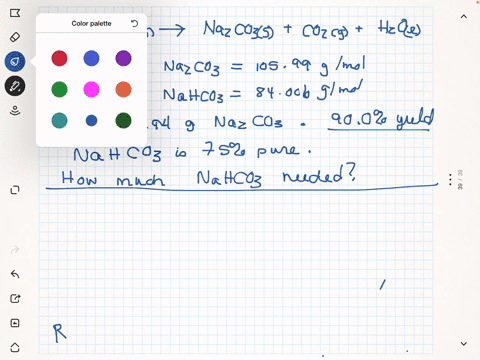 Color palette
(s) → Na2CO3(s) + CO2(g) + H2O(l)
Na2CO3 = 105.99 g/mol
NaHCO3 = 84.006 g/mol
.94 g Na2CO3. 90.0% yield
NaHCO3 is 75% pure.
How much NaHCO3 needed?
R